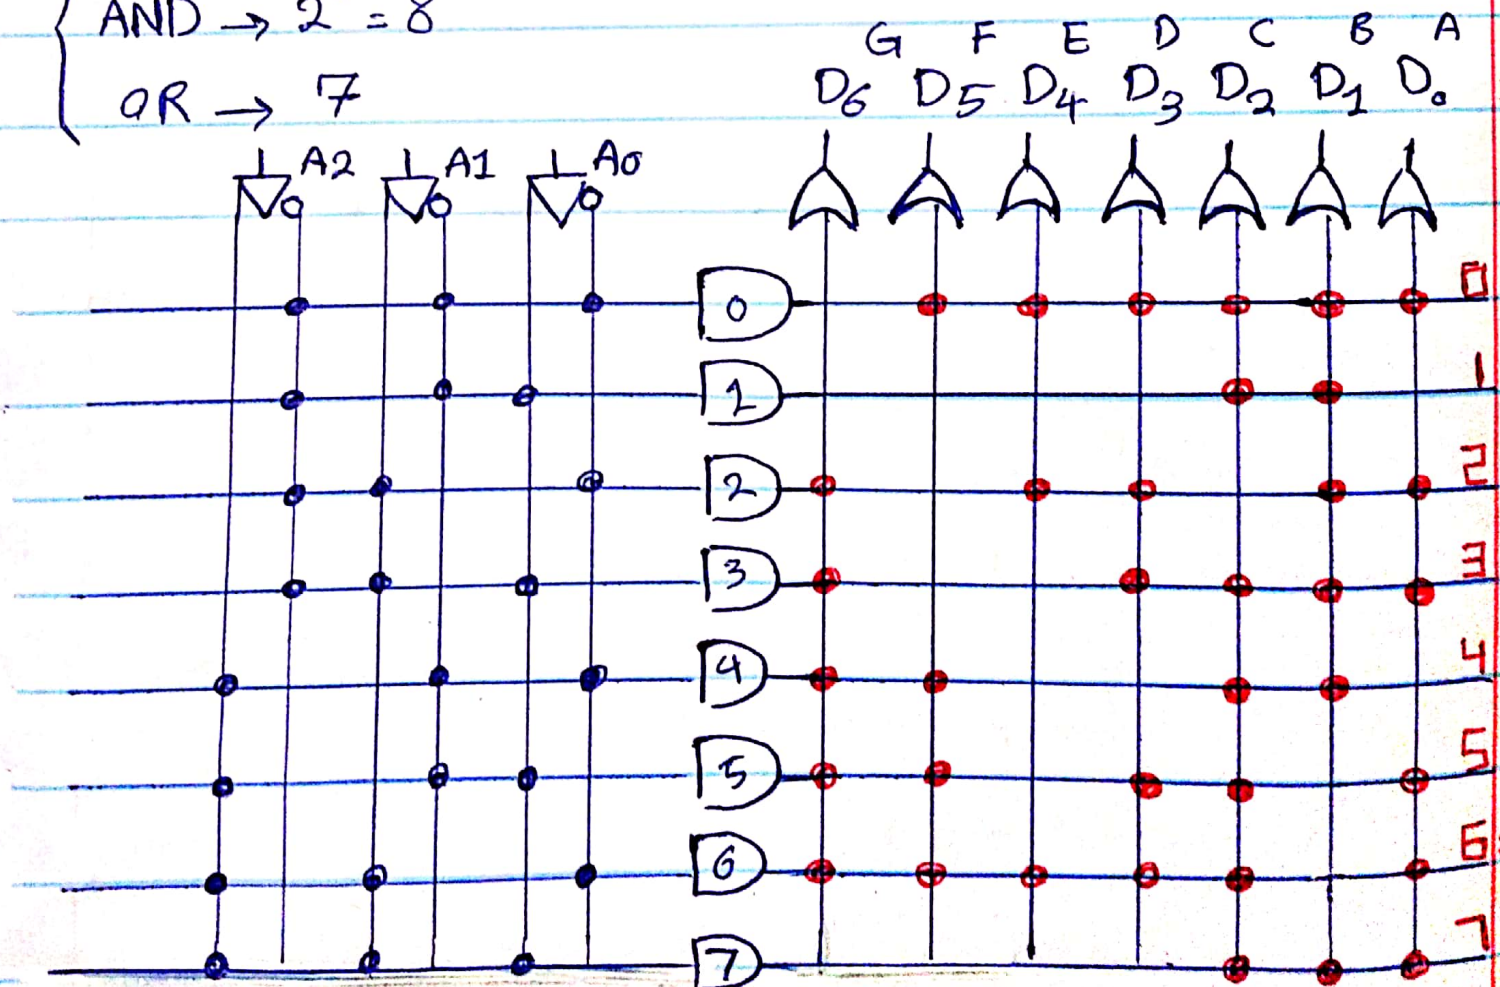 AND → 2 = 8
OR → 7
G F E D C B A
D6 D5 D4 D3 D2 D1 D0
A2 A1 A0
0 0
1 1
2 2
3 3
4 4
5 5
6 6
7 7